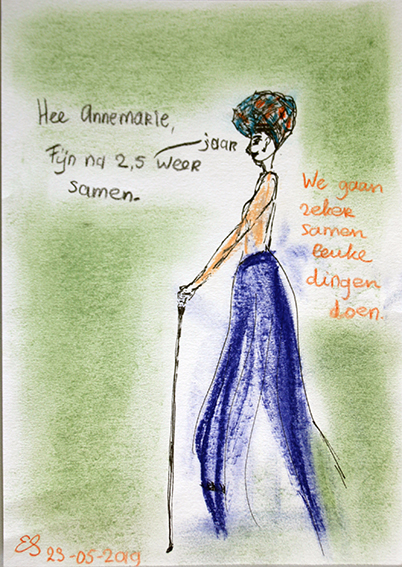 Hee Annemarie,
Fijn na 2,5 jaar weer
samen.
We gaan
zeker
samen
leuke
dingen
doen.
ES 23-05-2019